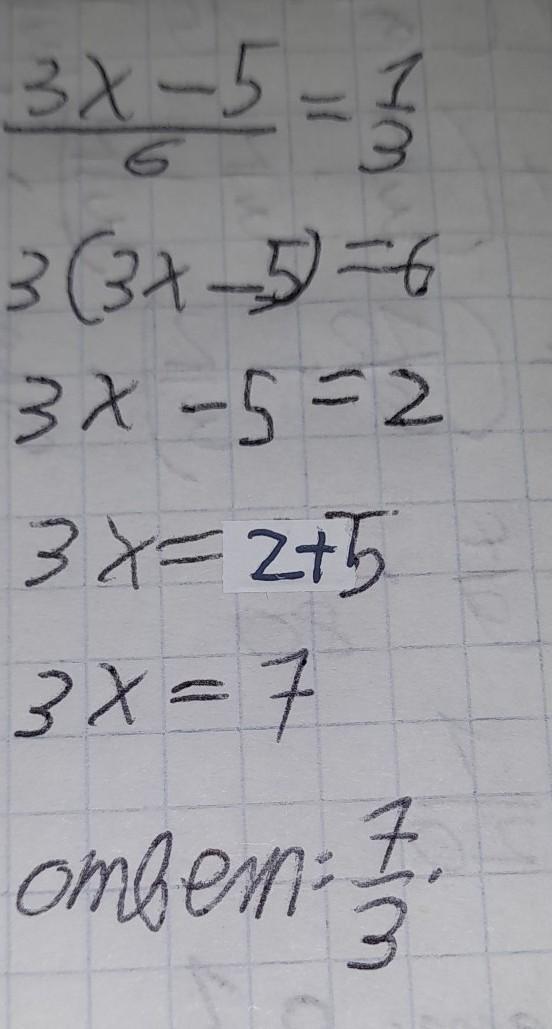 (3x-5)/6 = 1/3
3(3x-5)=6
3x-5=2
3x=2+5
3x=7
ответ: 7/3.